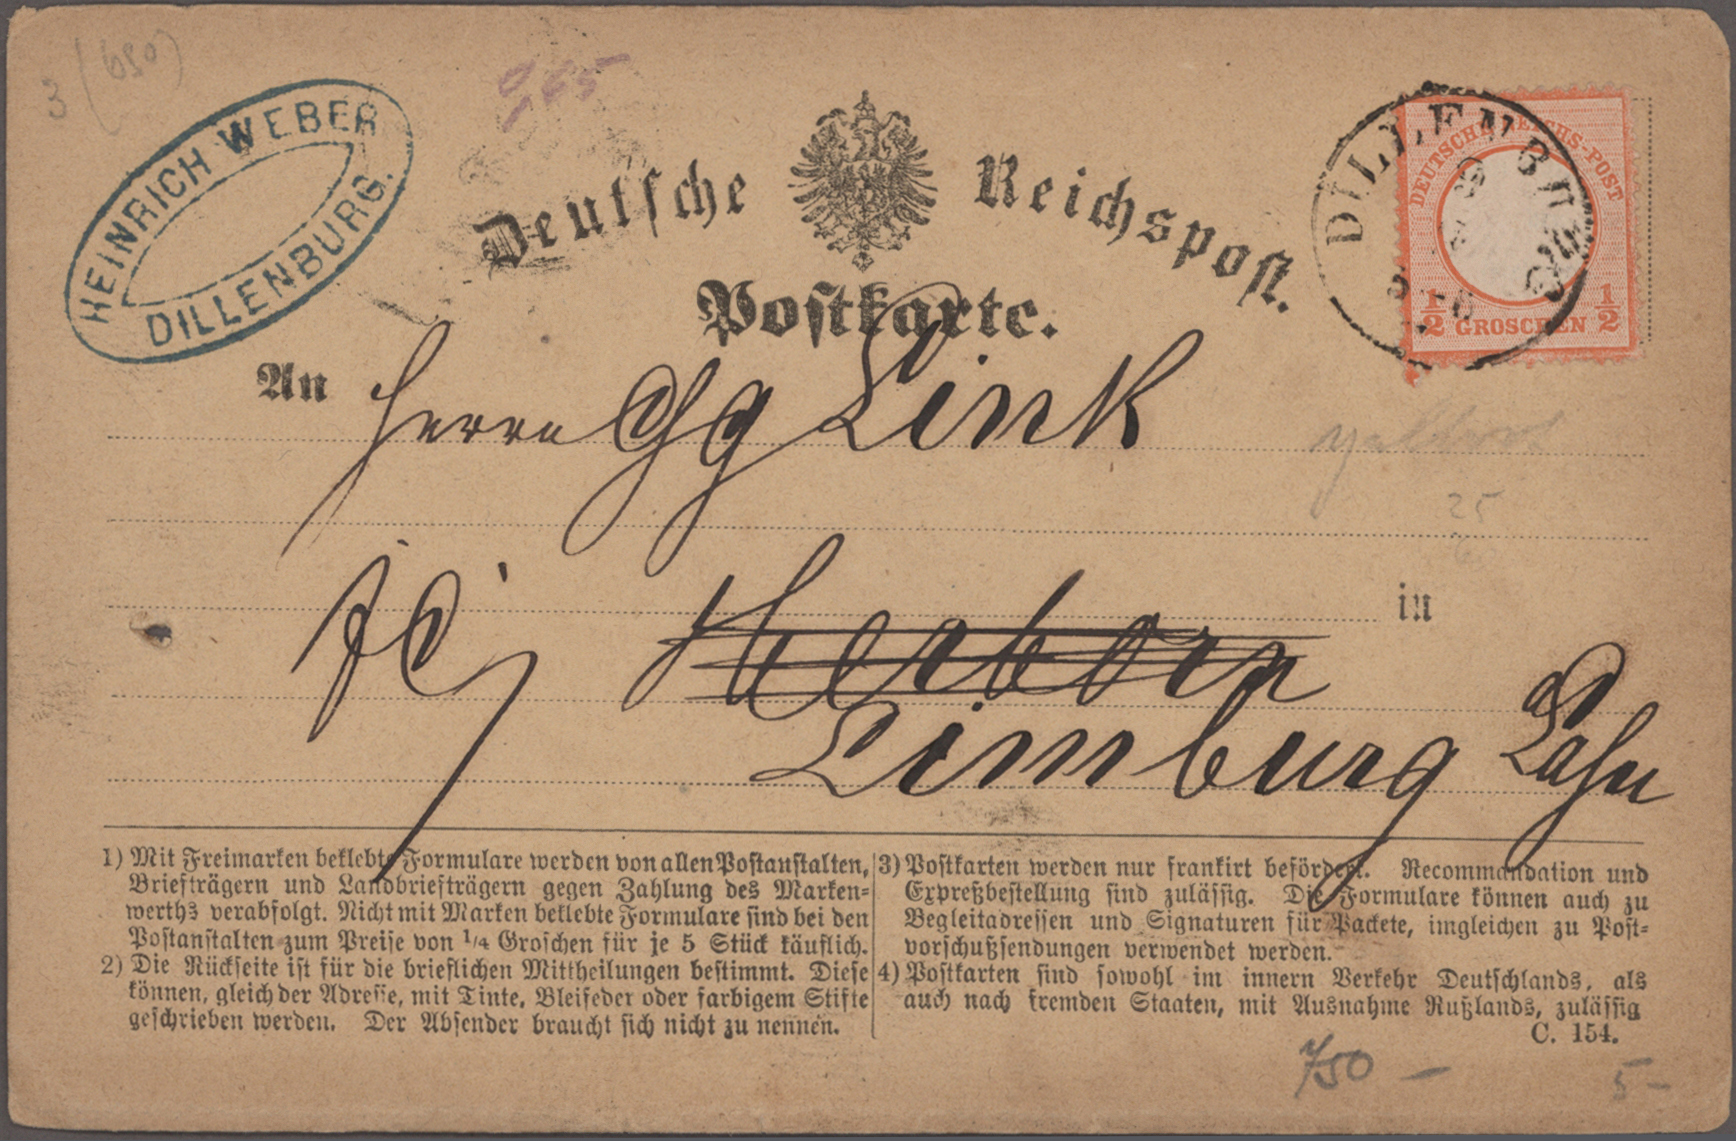 3 (680)
965
HEINRICH WEBER
DILLENBURG.
Deutsche Reichspost.
Postkarte.
DILLENBURG
DEUTSCHE REICHS-POST
1/2 GROSCHEN 1/2
An Herrn Gg Link
25
in
Herborn
Limburg Lahn
1) Mit Freimarken beklebte Formulare werden von allen Postanstalten,
Briefträgern und Landbriefträgern gegen Zahlung des Marken-
werths verabfolgt. Nicht mit Marken beklebte Formulare sind bei den
Postanstalten zum Preise von 1/4 Groschen für je 5 Stück käuflich.
2) Die Rückseite ist für die brieflichen Mittheilungen bestimmt. Diese
können, gleich der Adresse, mit Tinte, Bleifeder oder farbigem Stifte
geschrieben werden. Der Absender braucht sich nicht zu nennen.
3) Postkarten werden nur frankirt befördert. Recommandation und
Expreßbestellung sind zulässig. Die Formulare können auch zu
Begleitadressen und Signaturen für Packete, imgleichen zu Post-
vorschußsendungen verwendet werden.
4) Postkarten sind sowohl im innern Verkehr Deutschlands, als
auch nach fremden Staaten, mit Ausnahme Rußlands, zulässig
C. 154.
750 – 5–